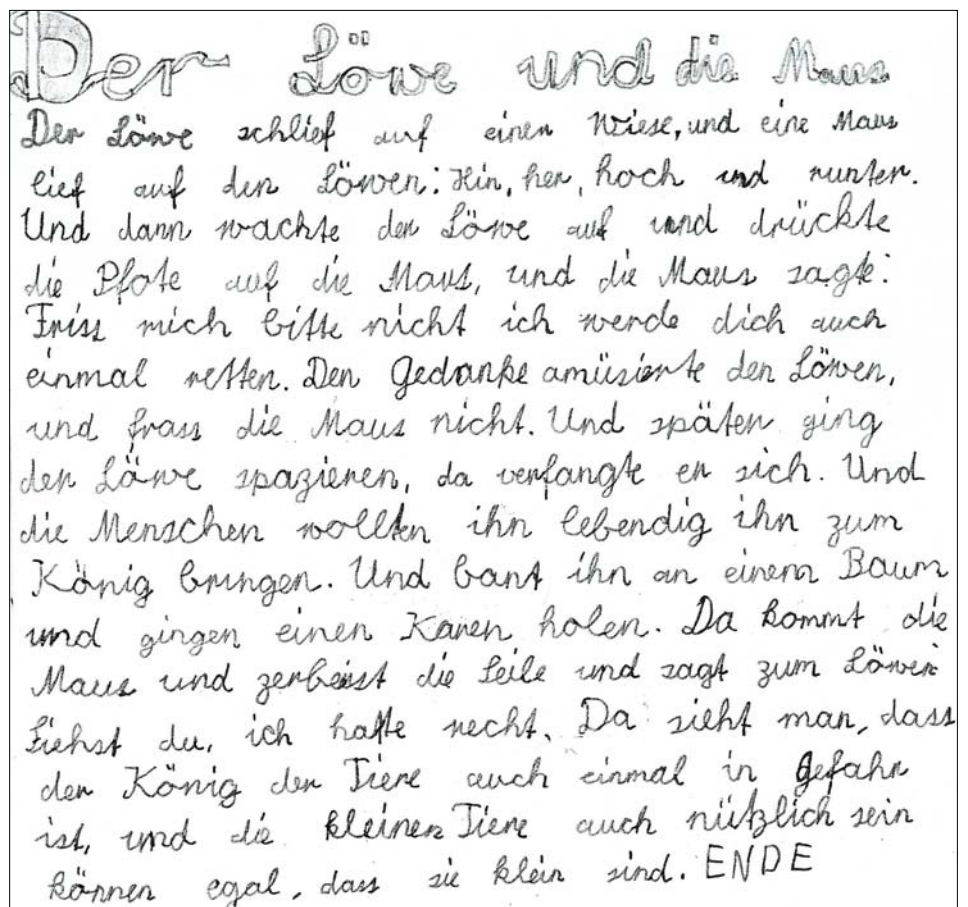 Der Löwe und die Maus
Der Löwe schlief auf einer Wiese, und eine Maus
lief auf den Löwen: Hin, her, hoch und runter.
Und dann wachte der Löwe auf und drückte
die Pfote auf die Maus, und die Maus sagte:
Friss mich bitte nicht ich werde dich auch
einmal retten. Der Gedanke amüsierte den Löwen,
und frass die Maus nicht. Und später ging
der Löwe spazieren, da verfangte er sich. Und
die Menschen wollten ihn lebendig ihn zum
König bringen. Und bant ihn an einem Baum
und gingen einen Karen holen. Da kommt die
Maus und zerbeisst die Seile und sagt zum Löwen
Siehst du, ich hatte recht. Da sieht man, dass
der König der Tiere auch einmal in Gefahr
ist, und die kleinen Tiere auch nützlich sein
können egal, dass sie klein sind. ENDE